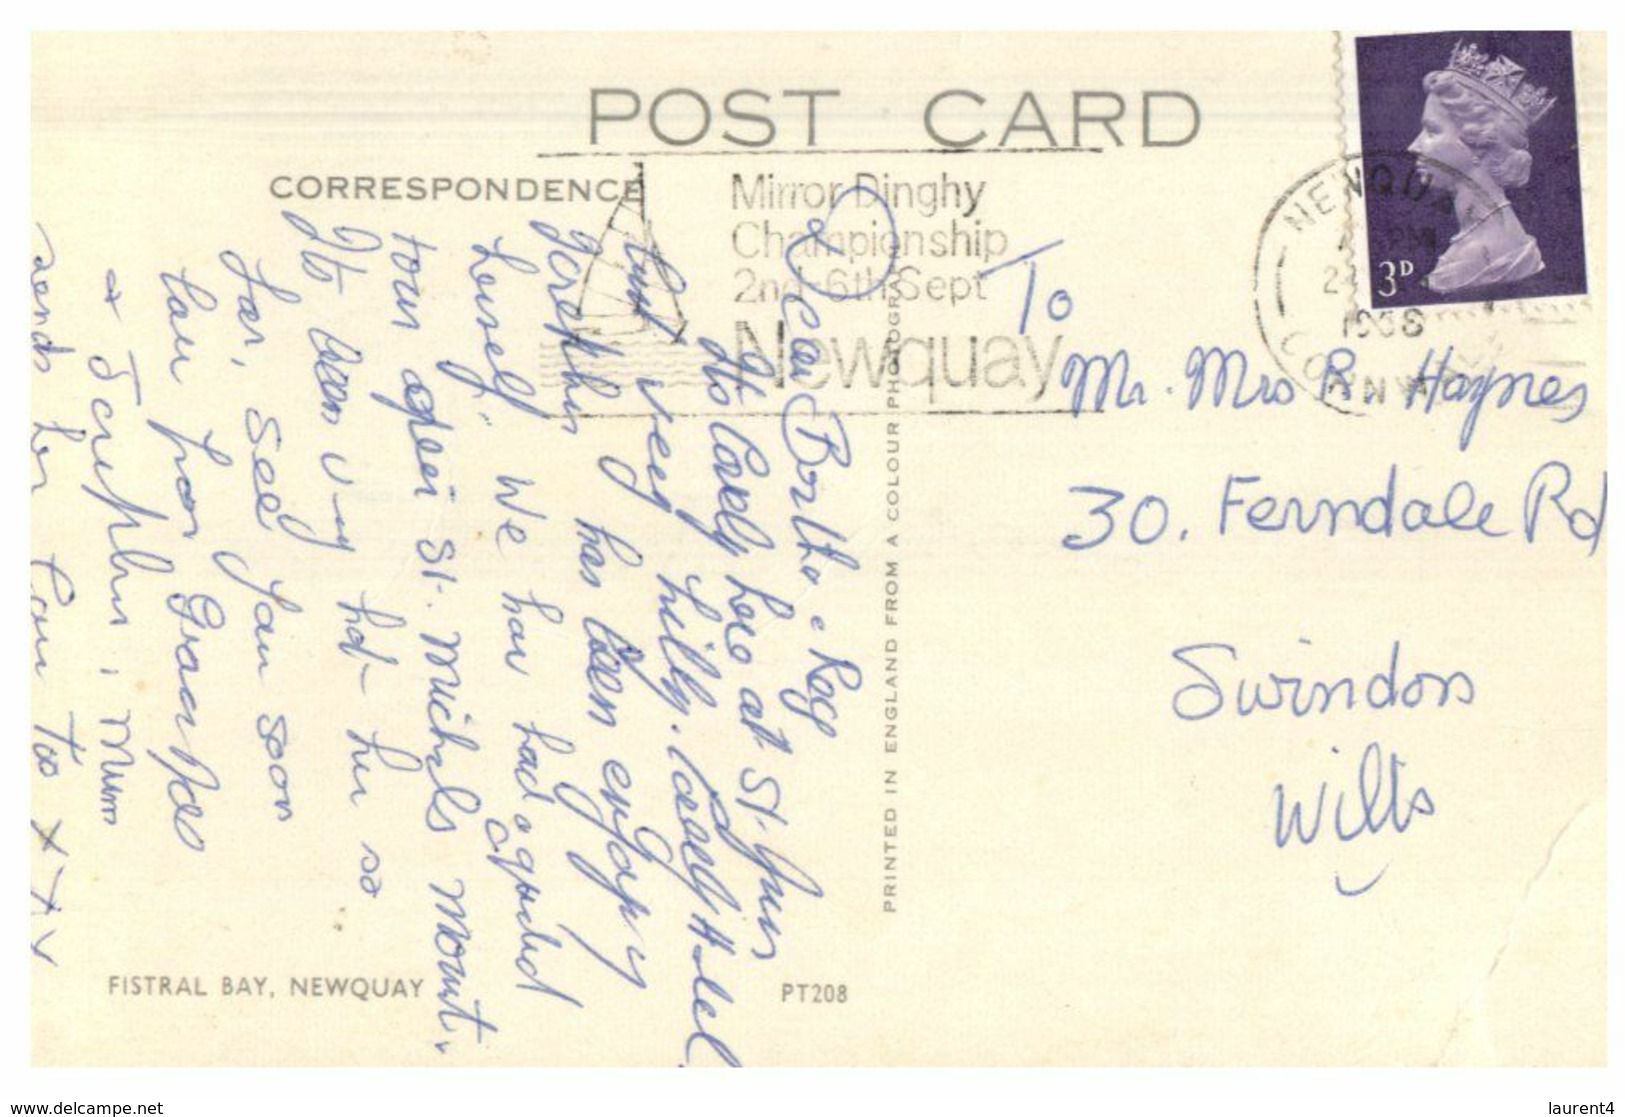 POST CARD
CORRESPONDENCE
Mirror Dinghy
Championship
2nd-6th Sept
Newquay
NEWQUAY
PM
1968
CORNWALL
3D
Dear Bertha & Reg
Its lovely here at St.
but very hilly. lovely Hotel
has been enjoying
herself. We have had a
tour over St. Michels Mount.
Its been very hot here so
far, See you soon
love from Gran
& Josephine, Mum
sends her love To x x x
To
Mr. Mrs R Haynes
30. Ferndale Rd
Swindon
Wilts
PRINTED IN ENGLAND FROM A COLOUR PHOTOGRAPH
FISTRAL BAY, NEWQUAY
PT208
www.delcampe.net
laurent4